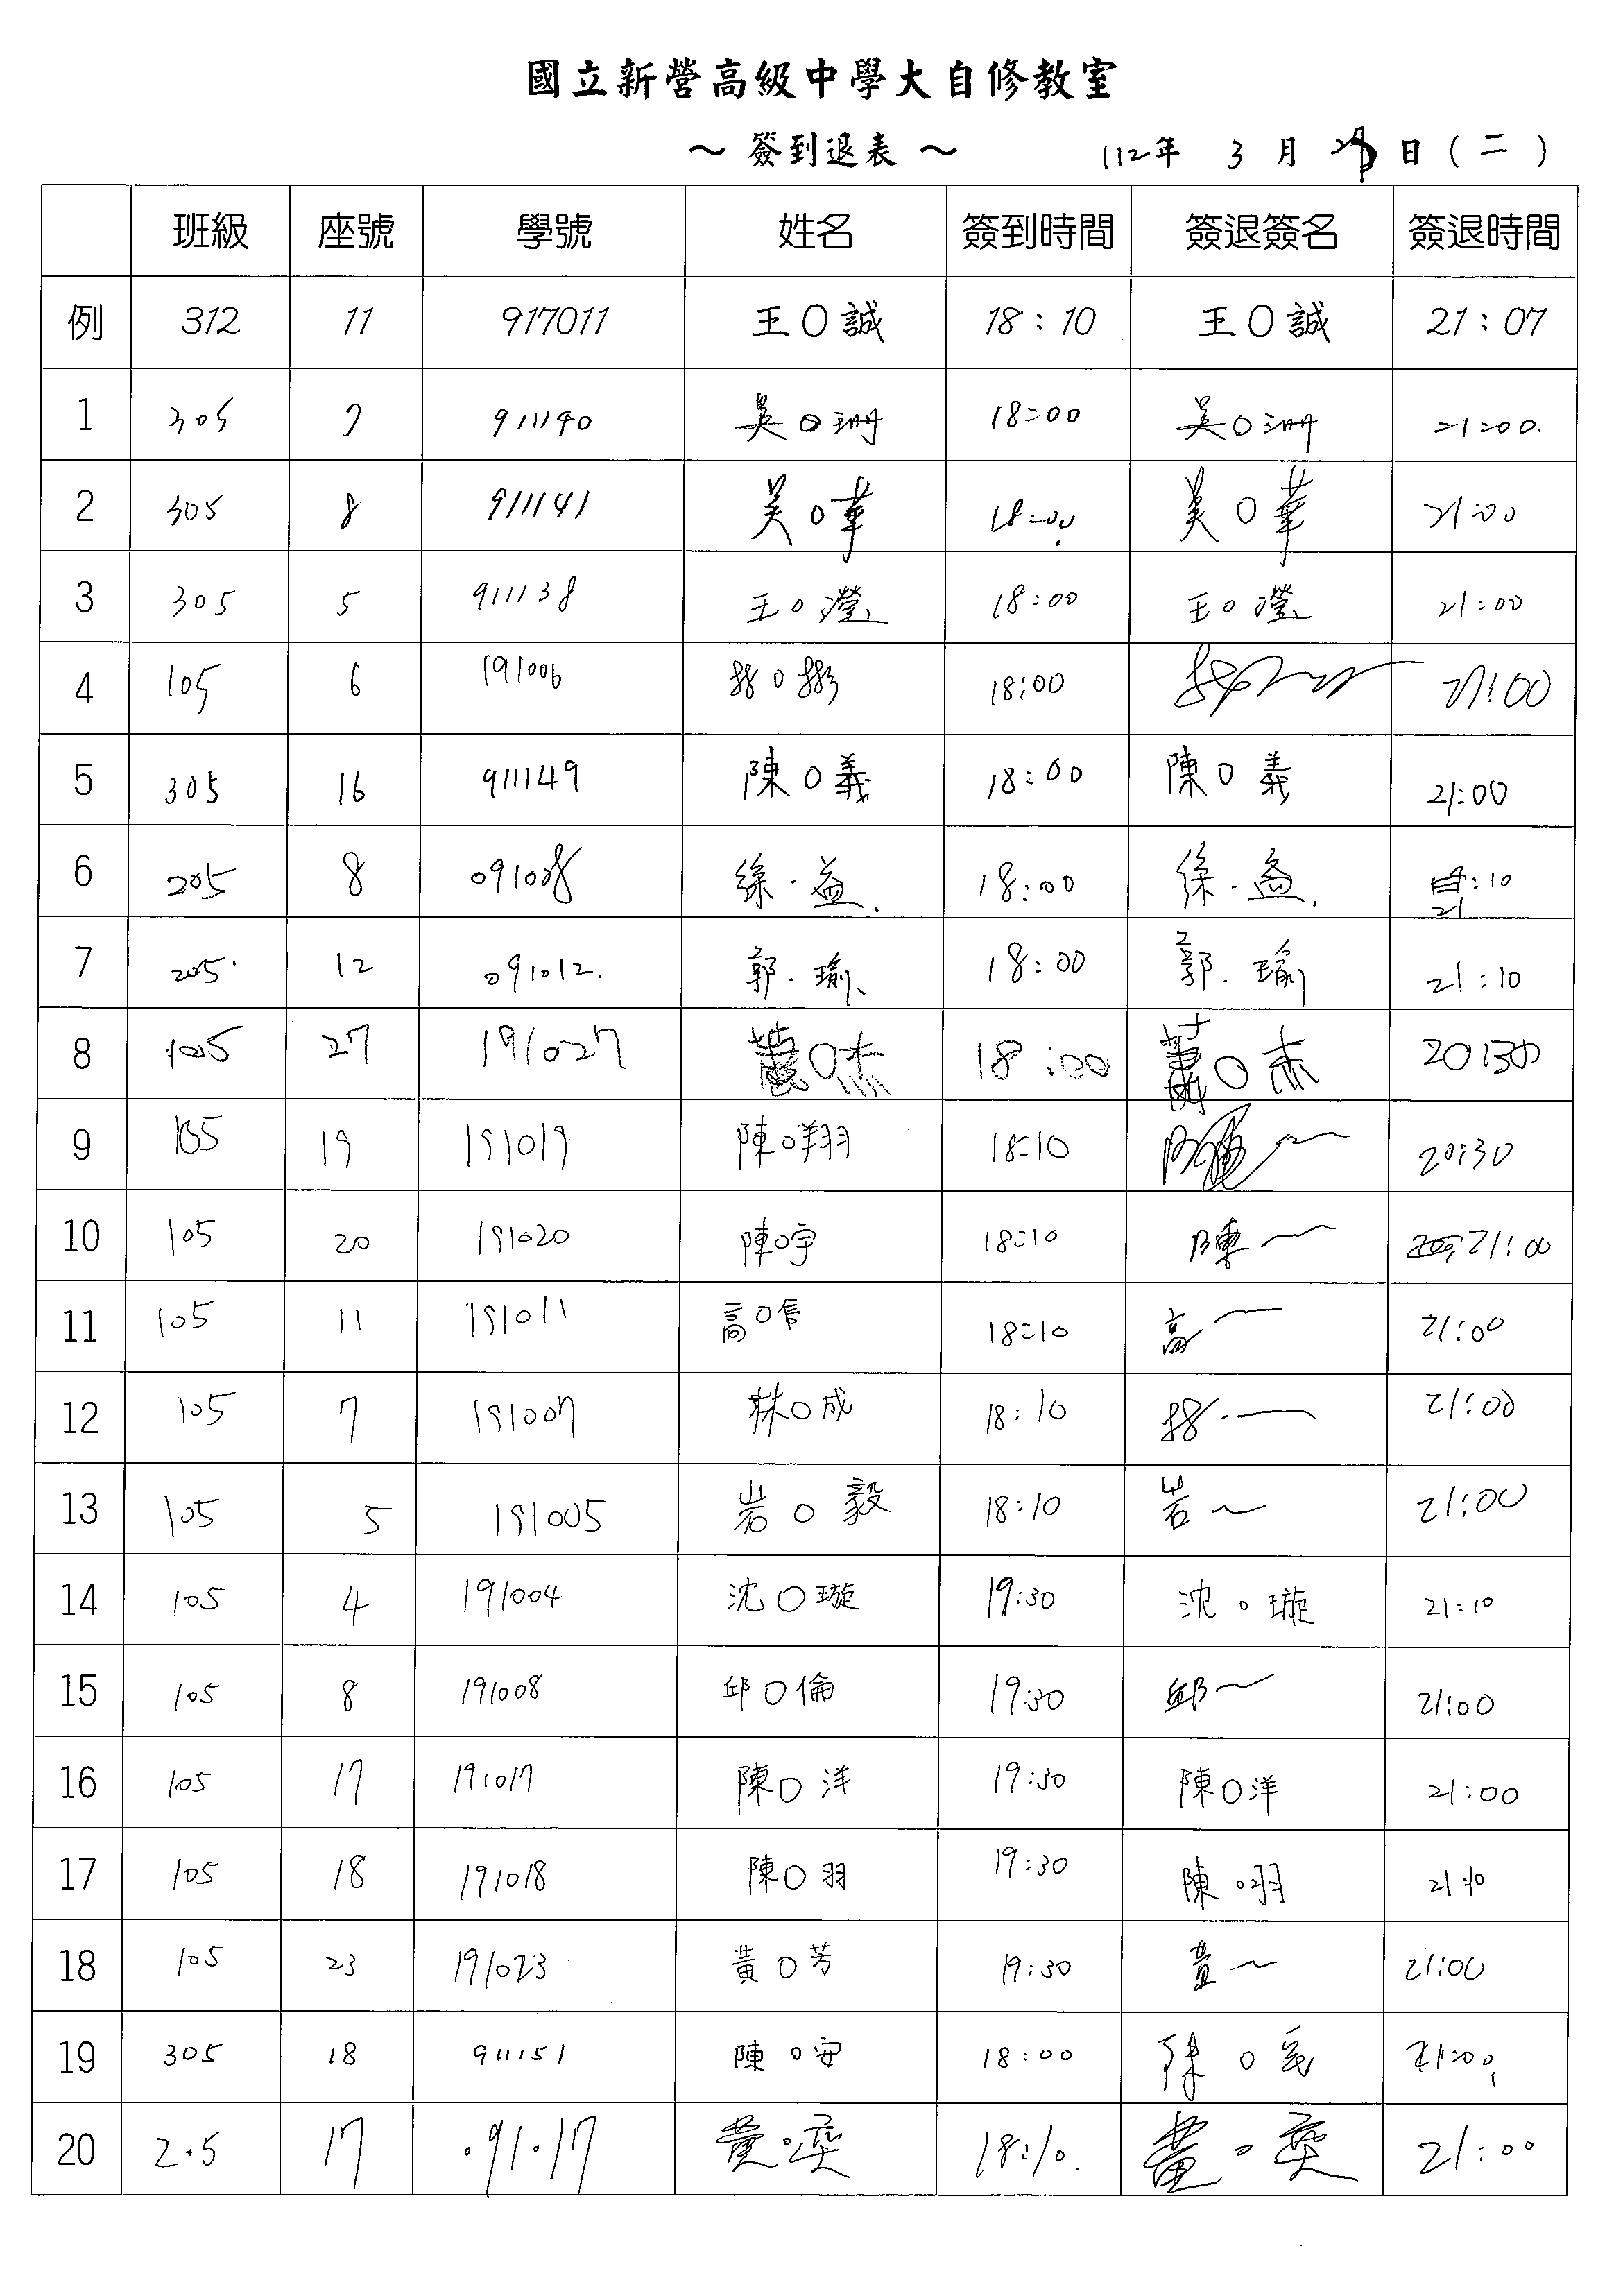 國立新營高級中學大自修教室
～ 簽到退表 ～ 112年 3 月 日 ( 二 )
班級 座號 學號 姓名 簽到時間 簽退簽名 簽退時間
例 312 11 917011 王O誠 18:10 王O誠 21:07
1 305 7 911140 吳O珊 18:00 吳O珊 21:00.
2 305 8 911141 吳O華 18:00 吳O華 21:00
3 305 5 911138 王O瀅 18:00 王O瀅 21:00
4 105 6 191006 林O 18:00 21:00
5 305 16 911149 陳O義 18:00 陳O義 21:00
6 205 8 091008 徐.益. 18:00 徐.益. 21:10
7 205 12 091012. 郭.瑜 18:00 郭.瑜 21:10
8 105 27 191027 蕭O杰 18:00 蕭O杰 20:30
9 105 19 191019 陳O翔 18:10 20:30
10 105 20 191020 陳O宇 18:10 陳 21:00
11 105 11 191011 高O 18:10 高 21:00
12 105 7 191007 林O成 18:10 林 21:00
13 105 5 191005 岩O毅 18:10 岩～ 21:00
14 105 4 191004 沈O璇 19:30 沈O璇 21:10
15 105 8 191008 邱O倫 19:30 邱～ 21:00
16 105 17 191017 陳O洋 19:30 陳O洋 21:00
17 105 18 191018 陳O羽 19:30 陳O羽 21:10
18 105 23 191023 黃O芳 19:30 黃～ 21:00
19 305 18 911151 陳O安 18:00 陳O安 21:00
20 2.5 17 .91.17 黃.奕 18:10. 黃.奕 21:00